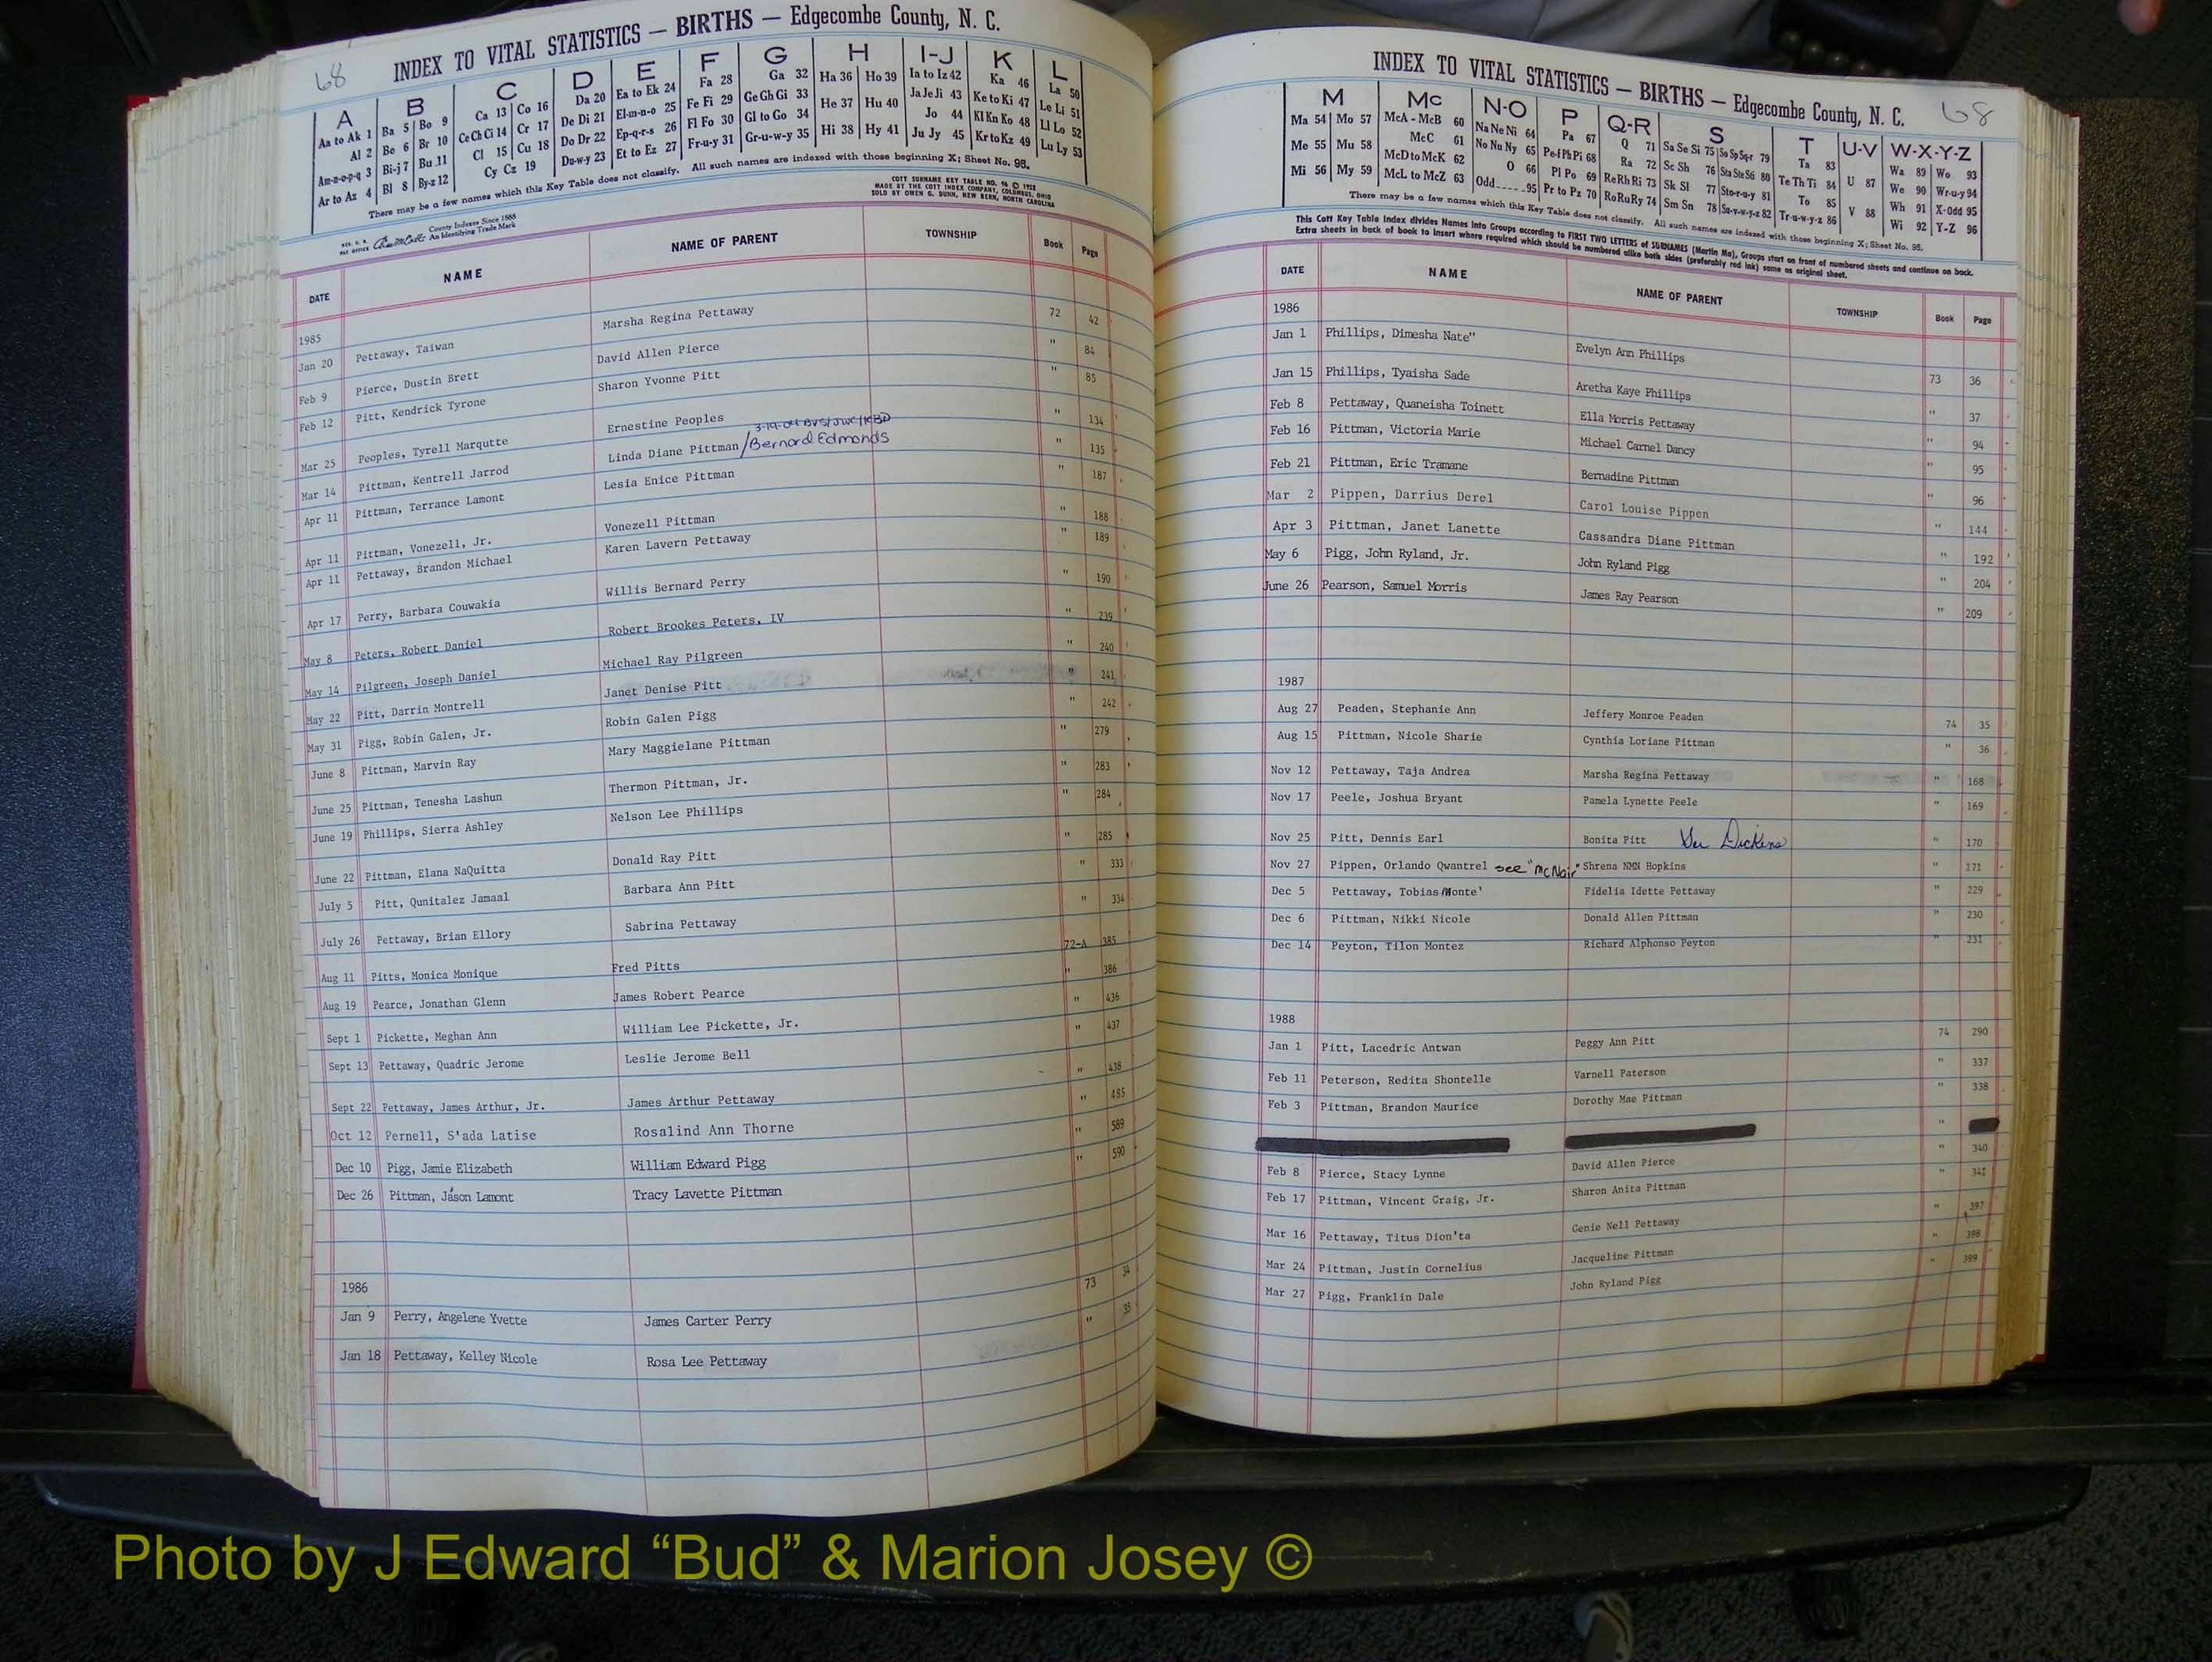 68
INDEX TO VITAL STATISTICS — BIRTHS — Edgecombe County, N. C.
A B C D E F G H I-J K L
Aa to Ak 1 Ba 5 Bo 9 Ca 13 Co 16 Da 20 Ea to Ek 24 Fa 28 Ga 32 Ha 36 Ho 39 Ia to Iz 42 Ka 46 La 50
Al 2 Be 6 Br 10 Ce Ch Ci 14 Cr 17 De Di 21 El-m-n-o 25 Fe Fi 29 Ge Gh Gi 33 He 37 Hu 40 Ja Je Ji 43 Ke to Ki 47 Le Li 51
Am-n-o-p-q 3 Bi-j 7 Bu 11 Cl 15 Cu 18 Do Dr 22 Ep-q-r-s 26 Fl Fo 30 Gl to Go 34 Hi 38 Hy 41 Jo 44 Kl Kn Ko 48 Ll Lo 52
Ar to Az 4 Bl 8 By-z 12 Cy Cz 19 Du-w-y 23 Et to Ez 27 Fr-u-y 31 Gr-u-w-y 35 Ju Jy 45 Kr to Kz 49 Lu Ly 53
There may be a few names which this Key Table does not classify. All such names are indexed with those beginning X; Sheet No. 95.
County Indexes Since 1888
An Identifying Trade Mark
COTT SURNAME KEY TABLE NO. 96 ©
MADE BY THE COTT INDEX COMPANY, COLUMBUS, OHIO
SOLD BY OWEN G. DUNN, NEW BERN, NORTH CAROLINA
DATE NAME NAME OF PARENT TOWNSHIP Book Page
1985
Jan 20 Pettaway, Taiwan Marsha Regina Pettaway 72 42
Feb 9 Pierce, Dustin Brett David Allen Pierce " 84
Feb 12 Pitt, Kendrick Tyrone Sharon Yvonne Pitt " 85
Mar 25 Peoples, Tyrell Marqutte Ernestine Peoples " 134
Mar 14 Pittman, Kentrell Jarrod Linda Diane Pittman/Bernard Edmonds " 135
Apr 11 Pittman, Terrance Lamont Lesia Enice Pittman " 187
Apr 11 Pittman, Vonezell, Jr. Vonezell Pittman " 188
Apr 11 Pettaway, Brandon Michael Karen Lavern Pettaway " 189
Apr 17 Perry, Barbara Couwakia Willis Bernard Perry " 190
May 8 Peters, Robert Daniel Robert Brookes Peters, IV " 239
May 14 Pilgreen, Joseph Daniel Michael Ray Pilgreen " 240
May 22 Pitt, Darrin Montrell Janet Denise Pitt " 241
May 31 Pigg, Robin Galen, Jr. Robin Galen Pigg " 242
June 8 Pittman, Marvin Ray Mary Maggielane Pittman " 279
June 25 Pittman, Tenesha Lashun Thermon Pittman, Jr. " 283
June 19 Phillips, Sierra Ashley Nelson Lee Phillips " 284
June 22 Pittman, Elana NaQuitta Donald Ray Pitt " 285
July 5 Pitt, Qunitalez Jamaal Barbara Ann Pitt " 333
July 26 Pettaway, Brian Ellory Sabrina Pettaway " 334
Aug 11 Pitts, Monica Monique Fred Pitts 72-A 385
Aug 19 Pearce, Jonathan Glenn James Robert Pearce " 386
Sept 1 Pickette, Meghan Ann William Lee Pickette, Jr. " 436
Sept 13 Pettaway, Quadric Jerome Leslie Jerome Bell " 437
Sept 22 Pettaway, James Arthur, Jr. James Arthur Pettaway " 438
Oct 12 Pernell, S'ada Latise Rosalind Ann Thorne " 485
Dec 10 Pigg, Jamie Elizabeth William Edward Pigg " 589
Dec 26 Pittman, Jason Lamont Tracy Lavette Pittman " 590
1986
Jan 9 Perry, Angelene Yvette James Carter Perry 73 34
Jan 18 Pettaway, Kelley Nicole Rosa Lee Pettaway " 35
INDEX TO VITAL STATISTICS — BIRTHS — Edgecombe County, N. C. 68
M Mc N-O P Q-R S T U-V W-X-Y-Z
Ma 54 Mo 57 McA - McB 60 Na Ne Ni 64 Pa 67 Q 71 Sa Se Si 75 So Sp Sq-r 79 Ta 83 U 87 Wa 89 Wo 93
Me 55 Mu 58 McC 61 No Nu Ny 65 Pe-f Ph Pi 68 Ra 72 Sc Sh 76 Sta Ste Sti 80 Te Th Ti 84 V 88 We 90 Wr-u-y 94
Mi 56 My 59 McD to McK 62 O 66 Pl Po 69 Re Rh Ri 73 Sk Sl 77 Sto-r-u-y 81 To 85 Wh 91 X-Odd 95
McL to McZ 63 Odd 95 Pr to Pz 70 Ro Ru Ry 74 Sm Sn 78 Su-v-w-y-z 82 Tr-u-w-y-z 86 Wi 92 Y-Z 96
There may be a few names which this Key Table does not classify. All such names are indexed with those beginning X; Sheet No. 95.
This Cott Key Table Index divides Names into Groups according to FIRST TWO LETTERS of SURNAMES (Martin Ma), Groups start on front of numbered sheets and continue on back.
Extra sheets in back of book to insert where required which should be numbered alike both sides (preferably red ink) same as original sheet.
DATE NAME NAME OF PARENT TOWNSHIP Book Page
1986
Jan 1 Phillips, Dimesha Nate" Evelyn Ann Phillips 73 36
Jan 15 Phillips, Tyaisha Sade Aretha Kaye Phillips " 37
Feb 8 Pettaway, Quaneisha Toinett Ella Morris Pettaway " 94
Feb 16 Pittman, Victoria Marie Michael Carnel Dancy " 95
Feb 21 Pittman, Eric Tramane Bernadine Pittman " 96
Mar 2 Pippen, Darrius Derel Carol Louise Pippen " 144
Apr 3 Pittman, Janet Lanette Cassandra Diane Pittman " 192
May 6 Pigg, John Ryland, Jr. John Ryland Pigg " 204
June 26 Pearson, Samuel Morris James Ray Pearson " 209
1987
Aug 27 Peaden, Stephanie Ann Jeffery Monroe Peaden 74 35
Aug 15 Pittman, Nicole Sharie Cynthia Loriane Pittman " 36
Nov 12 Pettaway, Taja Andrea Marsha Regina Pettaway " 168
Nov 17 Peele, Joshua Bryant Pamela Lynette Peele " 169
Nov 25 Pitt, Dennis Earl Bonita Pitt See Dickens " 170
Nov 27 Pippen, Orlando Qwantrel see "McNair" Shrena NMN Hopkins " 171
Dec 5 Pettaway, Tobias Monte' Fidelia Idette Pettaway " 229
Dec 6 Pittman, Nikki Nicole Donald Allen Pittman " 230
Dec 14 Peyton, Tilon Montez Richard Alphonso Peyton " 231
1988
Jan 1 Pitt, Lacedric Antwan Peggy Ann Pitt 74 290
Feb 11 Peterson, Redita Shontelle Varnell Paterson " 337
Feb 3 Pittman, Brandon Maurice Dorothy Mae Pittman " 338
"
Feb 8 Pierce, Stacy Lynne David Allen Pierce " 340
Feb 17 Pittman, Vincent Craig, Jr. Sharon Anita Pittman " 341
Mar 16 Pettaway, Titus Dion'ta Genie Nell Pettaway " 397
Mar 24 Pittman, Justin Cornelius Jacqueline Pittman " 398
Mar 27 Pigg, Franklin Dale John Ryland Pigg " 399
Photo by J Edward “Bud” & Marion Josey ©